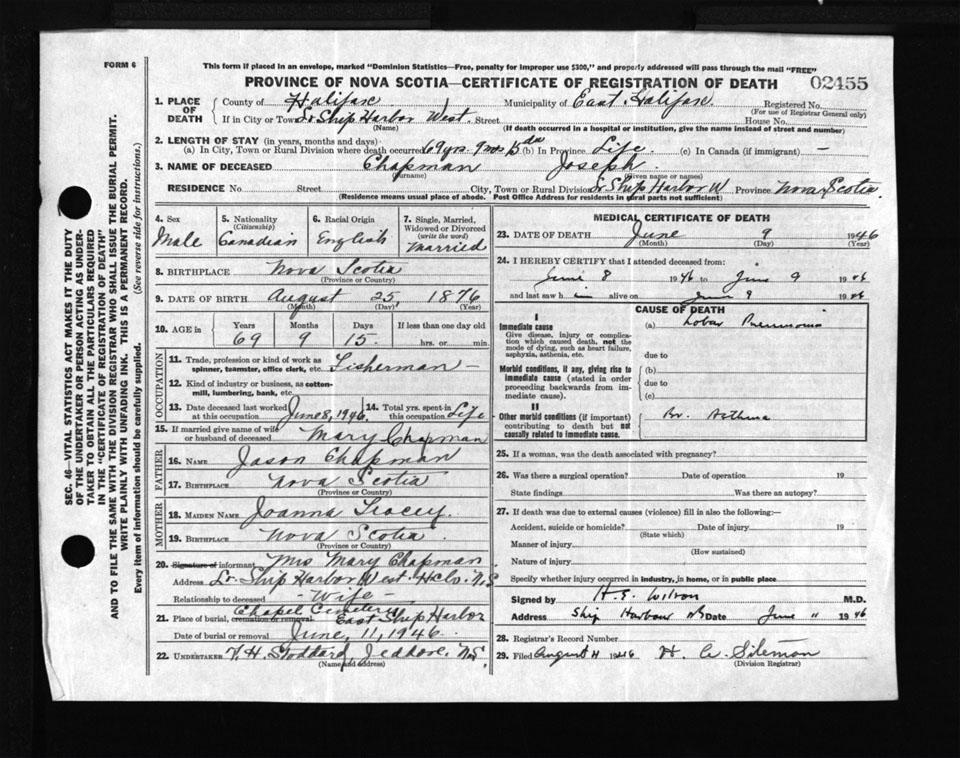 FORM 6
This form if placed in an envelope, marked "Dominion Statistics—Free, penalty for improper use $300," and properly addressed will pass through the mail "FREE"
PROVINCE OF NOVA SCOTIA—CERTIFICATE OF REGISTRATION OF DEATH
02455
1. PLACE OF DEATH
County of Halifax Municipality of East Halifax Registered No.
(For use of Registrar General only)
If in City or Town Lr Ship Harbor West Street House No.
(Name) (If death occurred in a hospital or institution, give the name instead of street and number)
2. LENGTH OF STAY (in years, months and days)
(a) In City, Town or Rural Division where death occurred 69 yrs. 9 mos 15 das (b) In Province Life. (c) In Canada (if immigrant) —
3. NAME OF DECEASED Chapman Joseph.
Surname) (Given name or names)
RESIDENCE No. Street City, Town or Rural Division Lr Ship Harbor W. Province Nova Scotia
(Residence means usual place of abode. Post Office Address for residents in rural parts not sufficient)
4. Sex
Male
5. Nationality
(Citizenship)
Canadian
6. Racial Origin
English
7. Single, Married, Widowed or Divorced
(write the word)
Married
8. BIRTHPLACE Nova Scotia
(Province or Country)
9. DATE OF BIRTH August 25, 1876
(Month) (Day) (Year)
10. AGE in
Years Months Days If less than one day old
69 9 15. hrs. or min.
OCCUPATION
11. Trade, profession or kind of work as spinner, teamster, office clerk, etc. Fisherman —
12. Kind of industry or business, as cotton-mill, lumbering, bank, etc.
13. Date deceased last worked at this occupation June 8, 1946. 14. Total yrs. spent in this occupation Life
15. If married give name of wife or husband of deceased Mary Chapman
FATHER
16. NAME Jason Chapman
17. BIRTHPLACE Nova Scotia
(Province or Country)
MOTHER
18. MAIDEN NAME Joanna Tracey.
19. BIRTHPLACE Nova Scotia
(Province or Country)
20. Signature of informant Mrs Mary Chapman
Address Lr. Ship Harbor West. Hx Co. N.S
Relationship to deceased - Wife -
21. Place of burial, cremation or removal Chapel Cemetery East Ship Harbor
Date of burial or removal June, 11, 1946.
22. UNDERTAKER V. H. Stoddard, Jeddore. N.S.
(Name and address)
MEDICAL CERTIFICATE OF DEATH
23. DATE OF DEATH June 9 1946
(Month) (Day) (Year)
24. I HEREBY CERTIFY that I attended deceased from:
June 8 1946 to June 9 1946
and last saw him alive on June 9 1946
CAUSE OF DEATH
I
Immediate cause
Give disease, injury or complication which caused death, not the mode of dying, such as heart failure, asphyxia, asthenia, etc.
(a) Lobar Pneumonia
due to
Morbid conditions, if any, giving rise to immediate cause (stated in order proceeding backwards from immediate cause).
(b)
due to
(c)
II
Other morbid conditions (if important) contributing to death but not causally related to immediate cause.
Br. Asthma
25. If a woman, was the death associated with pregnancy?
26. Was there a surgical operation? Date of operation 19
State findings Was there an autopsy?
27. If death was due to external causes (violence) fill in also the following:—
Accident, suicide or homicide? Date of injury 19
(State which)
Manner of injury
(How sustained)
Nature of injury
Specify whether injury occurred in industry, in home, or in public place
Signed by H. E. Wilson M.D.
Address Ship Harbour NS Date June 11 1946
28. Registrar's Record Number
29. Filed August 4 1946
(Division Registrar)
SEC. 46—VITAL STATISTICS ACT MAKES IT THE DUTY
OF THE UNDERTAKER OR PERSON ACTING AS UNDER-
TAKER TO OBTAIN ALL THE PARTICULARS REQUIRED
IN THE "CERTIFICATE OF REGISTRATION OF DEATH"
AND TO FILE THE SAME WITH THE DIVISION REGISTRAR WHO SHALL ISSUE THE BURIAL PERMIT.
WRITE PLAINLY WITH UNFADING INK. THIS IS A PERMANENT RECORD.
Every item of information should be carefully supplied. (See reverse ride for instructions.)